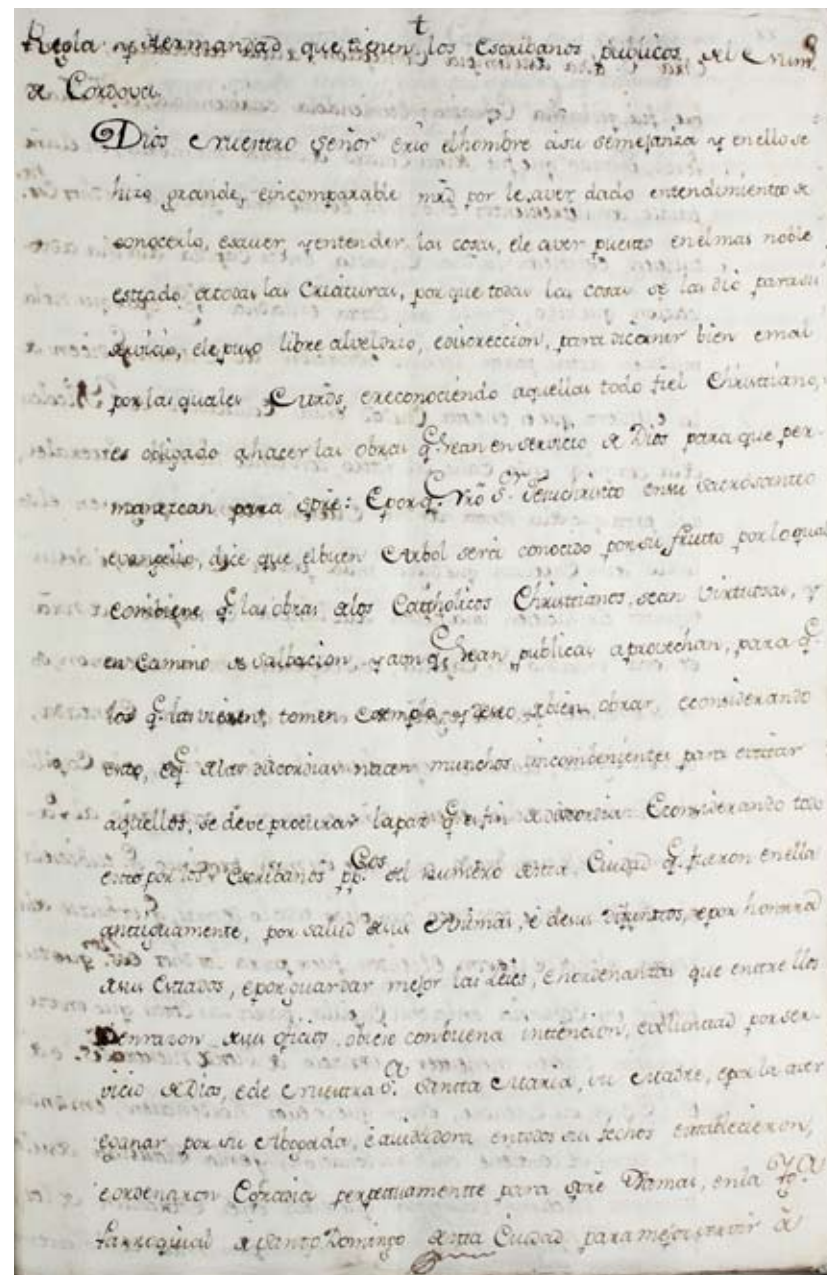 †
Regla y Hermandad, que tienen los Escribanos publicos, del Num.º
de Cordova.
Dios Nuestro Señor crio el hombre á su semejanza y en ello se
hizo grande, e incomparable mrd por le aver dado entendimiento de
conocerlo, e saver, y entender, las cosas, e le aver puesto en el mas noble
estado de todas las Criaturas, por que todas las cosas se las dió para su
servicio, e le puso libre alvedrio, e discreccion, para dicerner bien e mal
por las quales, e reconociendo aquellas todo fiel Christiano,
es obligado a hacer las obras q.e sean en servicio de Dios para que per-
manezcan para spre: E por q.e Nrô S.or Jesuchristo en su sacrosanto
evangelio, dice que el buen Arbol será conocido por su fruto por lo qual
combiene q.e las obras de los Catholicos Christianos, sean virtuosas, y
en Camino de salbacion, y aun q.e sean publicas aprovechan, para q.e
los q.e las vieren, tomen exemplo, y deseo de bien obrar, e considerando
esto, e q.e de las discordias nacen munchos incombenientes para evitar
aquellos, se deve procurar la paz q.e es fin de discordia: E considerando todo
esto por los Escribanos pp.cos del Numero desta Ciudad q.e fueron en ella
antiguamente, por salud de sus Animas, é de sus difuntos, e por honrra
de sus Estados, e por guardar mejor las Leies, e hordenanzas que entre llos
de sus oficios, con buena intencion, e voluntad por ser-
vicio de Dios, e de Nuestra S.a Santa Maria, su Madre, e por la aver
e ganar por su Abogada, é aiudadora en todos sus fechos establecieron,
e ordenaron Cofradia perpetuamente para spre Jamas, en la Ygª
Parroquial de Santo Domingo desta Ciudad para mejor servir á